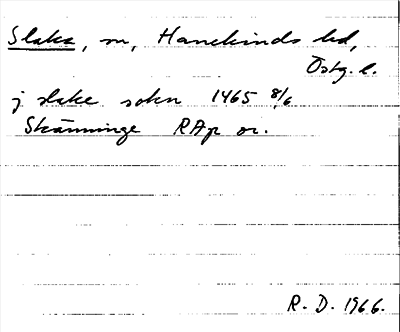 Slaka, sn, Hanekinds hd,
Östg. l.
j slake sokn 1465 8/6
Skänninge RAp or.
R. D. 1966.